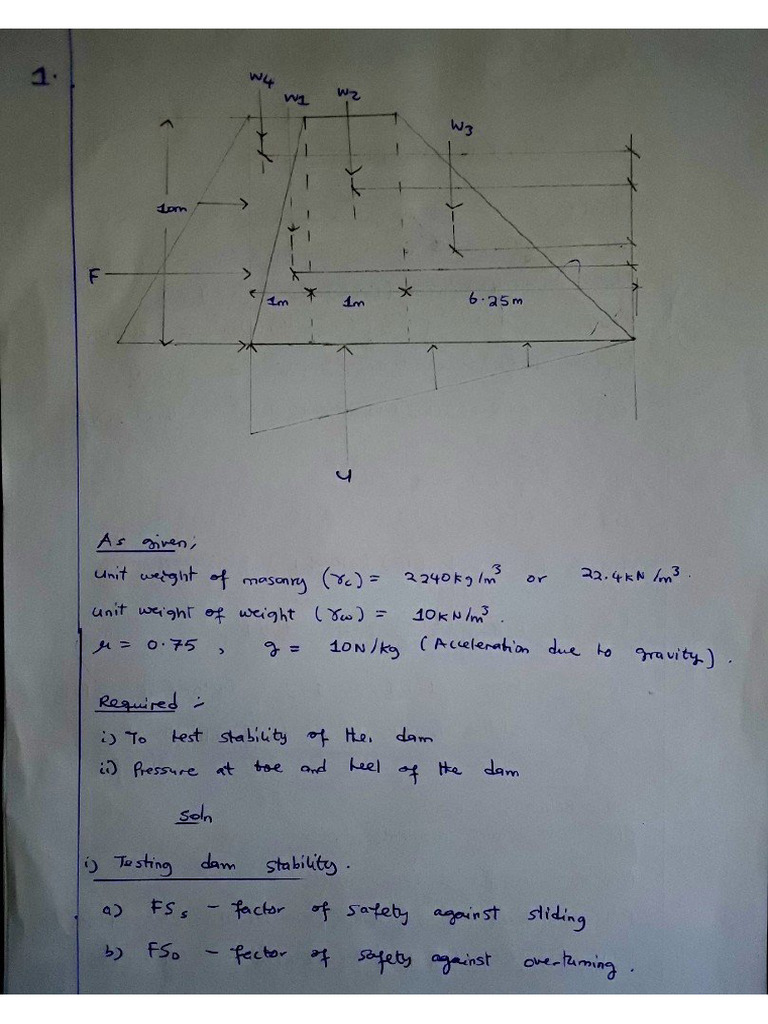 1.
W4
W1
W2
W3
10m
F
1m
1m
6.25m
U
As given;
Unit weight of masonry (γc) = 2240kg/m³ or 22.4kN/m³.
Unit weight of weight (γω) = 10KN/m³.
μ = 0.75 , g = 10N/kg (Acceleration due to gravity).
Required :-
i) To test stability of the. dam
ii) Pressure at toe and heel of the dam
Soln
i) Testing dam stability.
a) FSs - factor of safety against sliding
b) FSo - factor of safety against overturning.